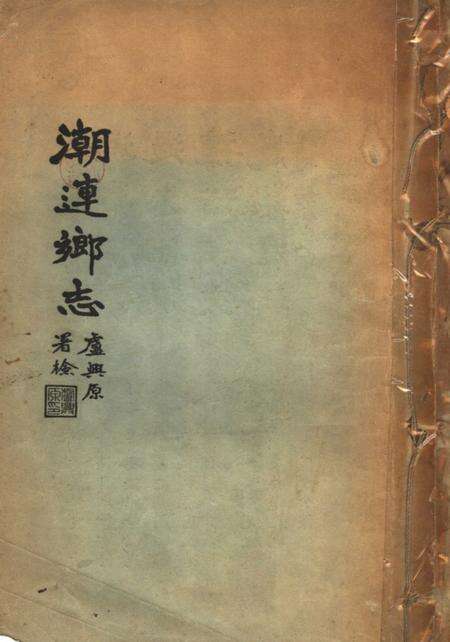 潮連鄉志
盧興原
署檢